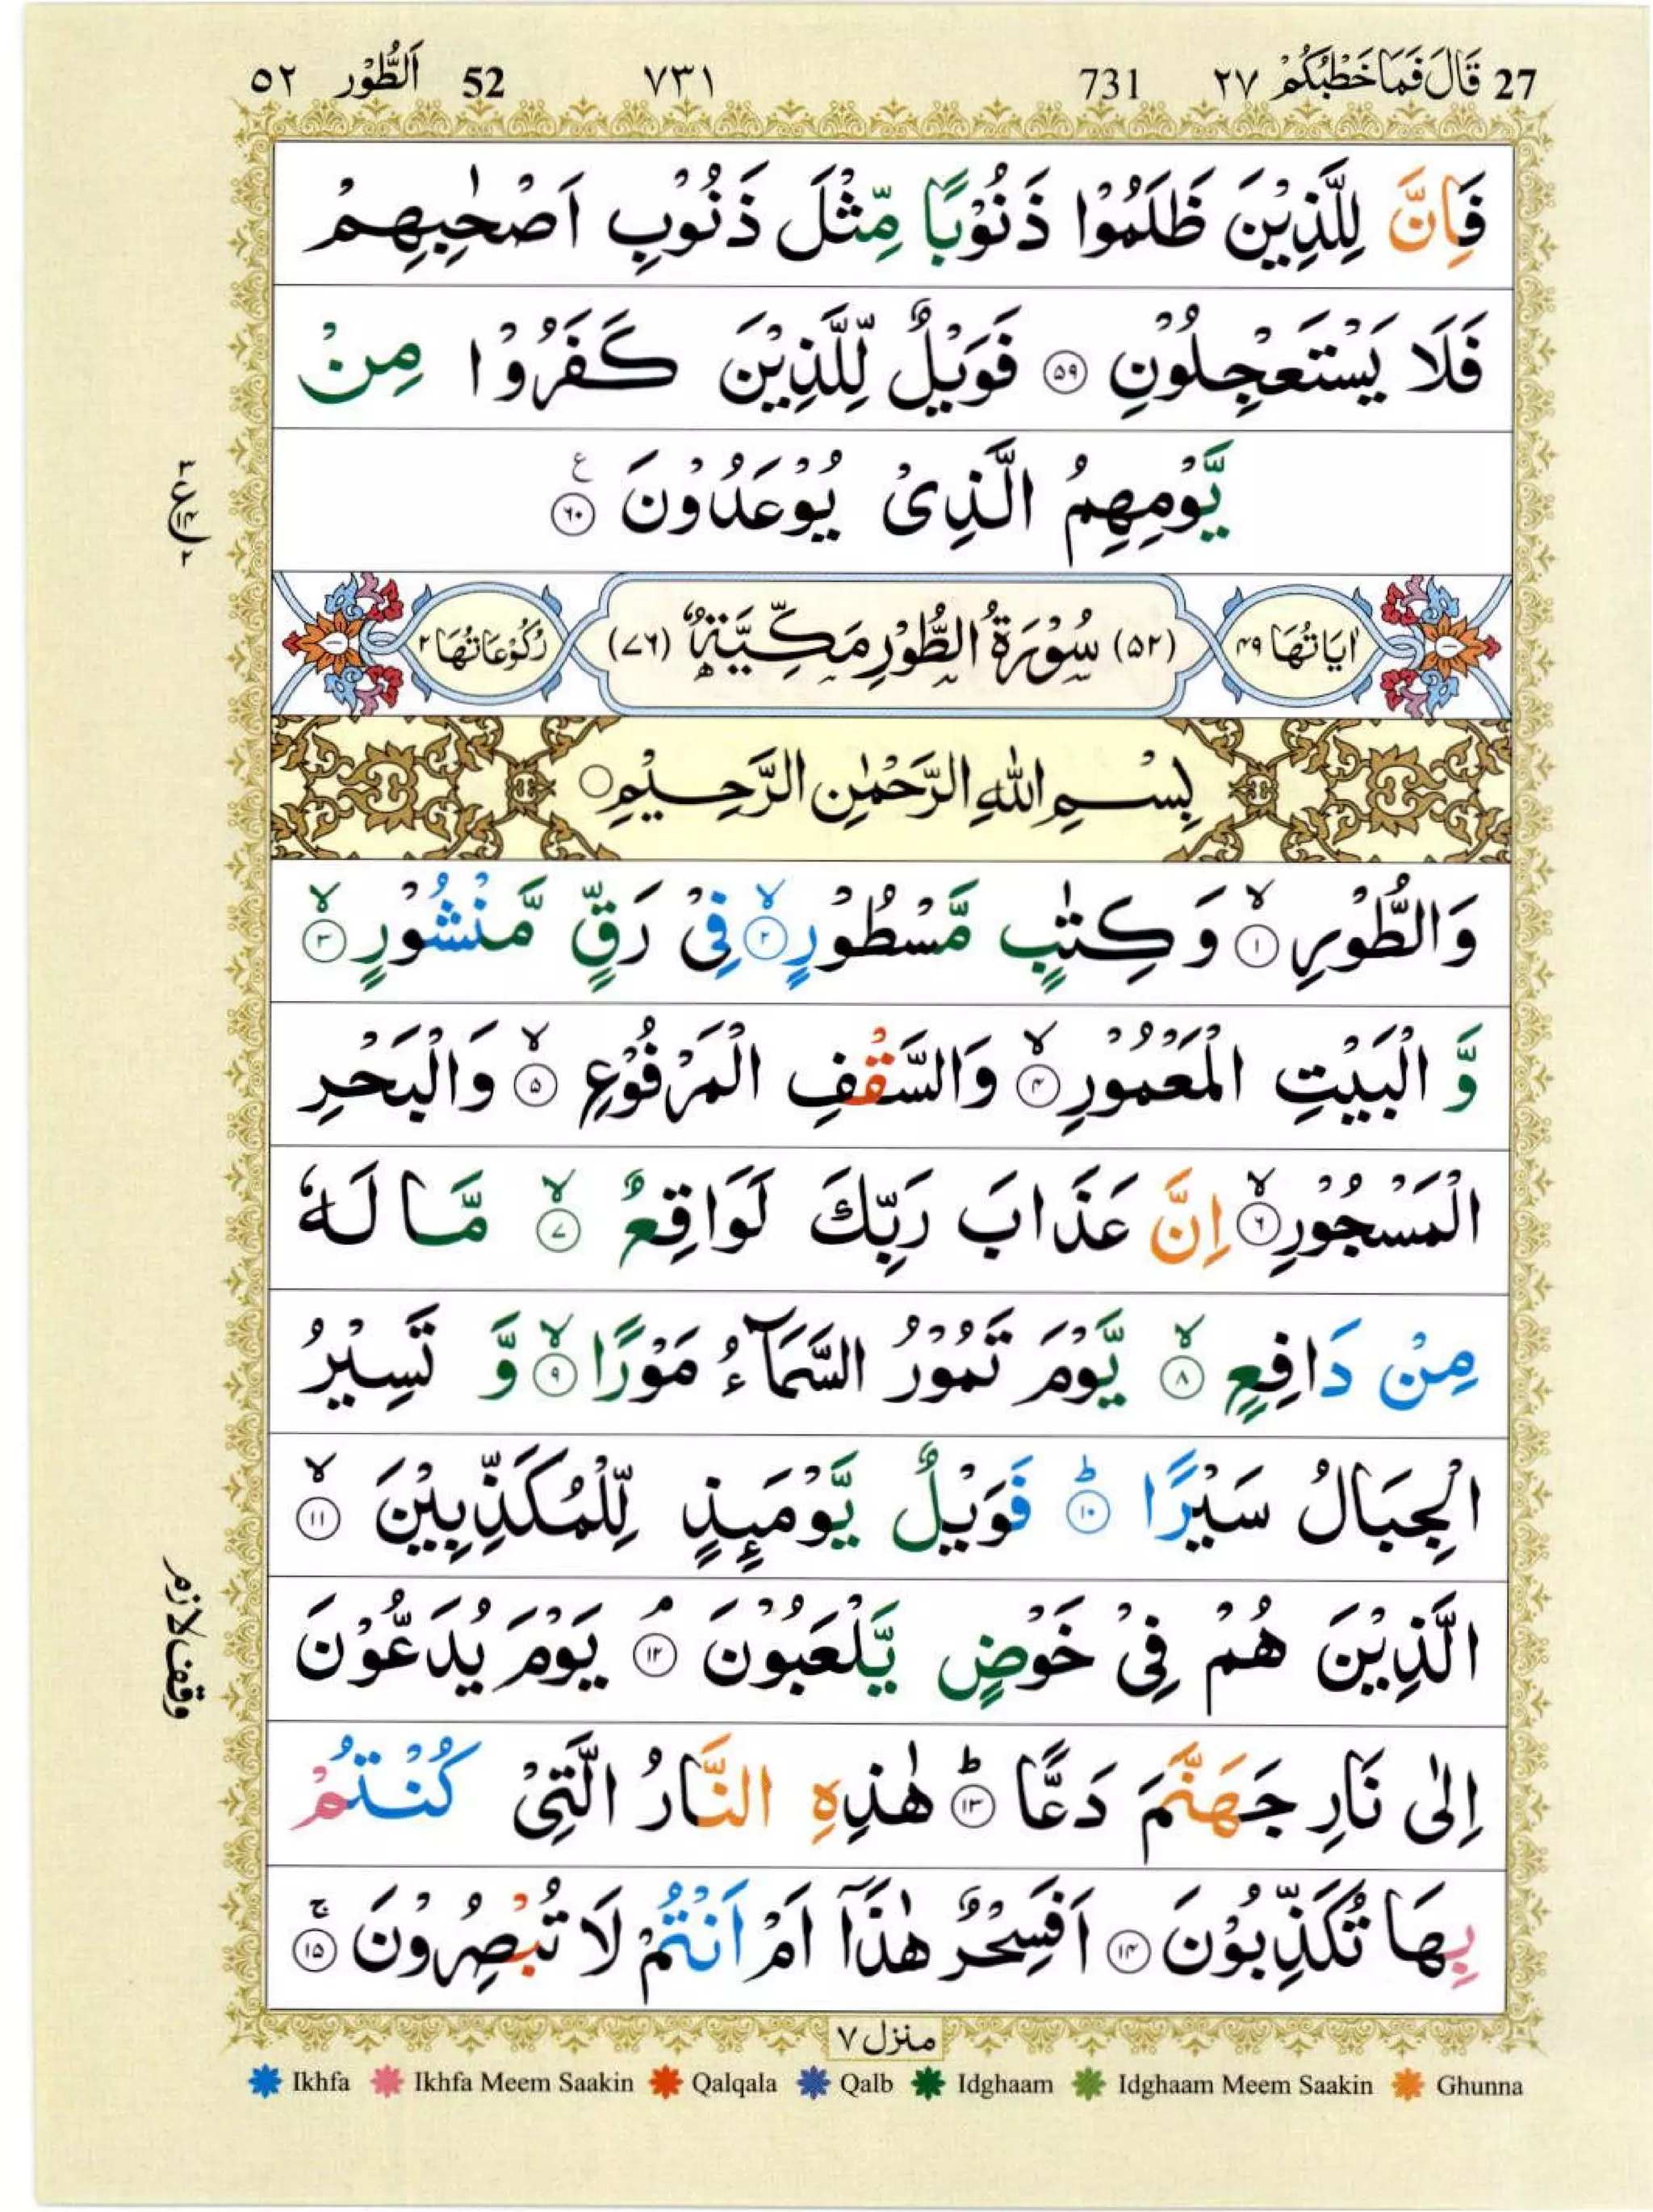 27 قَالَ فَمَا خَطْبُكُمْ ٢٧ 731 ٧٣١ 52 اَلطُّوْر ٥٢
فَاِنَّ لِلَّذِيْنَ ظَلَمُوْا ذَنُوْبًا مِّثْلَ ذَنُوْبِ اَصْحٰبِهِمْ
فَلَا يَسْتَعْجِلُوْنِ ۵۹ فَوَيْلٌ لِّلَّذِيْنَ كَفَرُوْا مِنْ
يَّوْمِهِمُ الَّذِىْ يُوْعَدُوْنَ ۶۰ ع
اٰيَاتُهَا ۴۹ (۵۲) سُوْرَةُ الطُّوْرِ مَكِّيَّةٌ (۷۶) رُكُوْعَاتُهَا ۲
بِسْمِ اللهِ الرَّحْمٰنِ الرَّحِيْمِ
وَالطُّوْرِ ۙ ۱ وَ كِتٰبٍ مَّسْطُوْرٍ ۙ ۲ فِىْ رَقٍّ مَّنْشُوْرٍ ۙ ۳
وَّ الْبَيْتِ الْمَعْمُوْرِ ۙ ۴ وَالسَّقْفِ الْمَرْفُوْعِ ۙ ۵ وَالْبَحْرِ
الْمَسْجُوْرِ ۙ ۶ اِنَّ عَذَابَ رَبِّكَ لَوَاقِعٌ ۙ ۷ مَّا لَهٗ
مِنْ دَافِعٍ ۙ ۸ يَّوْمَ تَمُوْرُ السَّمَآءُ مَوْرًا ۙ ۹ وَّ تَسِيْرُ
الْجِبَالُ سَيْرًا ؕ ۱۰ فَوَيْلٌ يَّوْمَئِذٍ لِّلْمُكَذِّبِيْنَ ۙ ۱۱
الَّذِيْنَ هُمْ فِىْ خَوْضٍ يَّلْعَبُوْنَ ۘ ۱۲ يَوْمَ يُدَعُّوْنَ
وقف لازم
اِلٰى نَارِ جَهَنَّمَ دَعًّا ؕ ۱۳ هٰذِهِ النَّارُ الَّتِىْ كُنْتُمْ
بِهَا تُكَذِّبُوْنَ ۱۴ اَفَسِحْرٌ هٰذَآ اَمْ اَنْتُمْ لَا تُبْصِرُوْنَ ۚ ۱۵
منزل ۷
Ikhfa Ikhfa Meem Saakin Qalqala Qalb Idghaam Idghaam Meem Saakin Ghunna